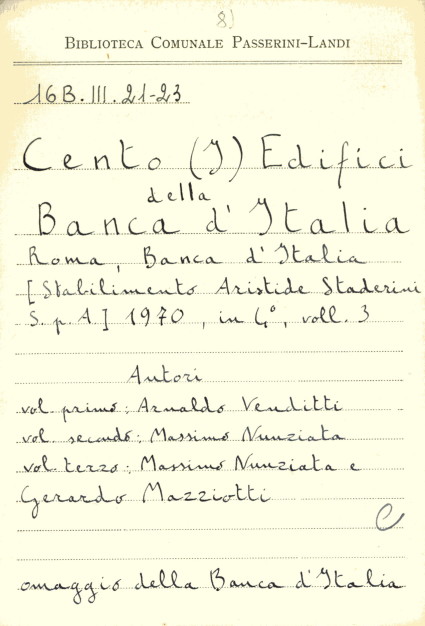 8)
BIBLIOTECA COMUNALE PASSERINI-LANDI
16B.III.21-23
Cento (I) Edifici
della
Banca d'Italia
Roma, Banca d'Italia
[Stabilimento Aristide Staderini
S. p. A.] 1970, in 4°, voll. 3
Autori
vol. primo: Arnaldo Venditti
vol. secondo: Massimo Nunziata
vol. terzo: Massimo Nunziata e
Gerardo Mazziotti
C
omaggio della Banca d'Italia